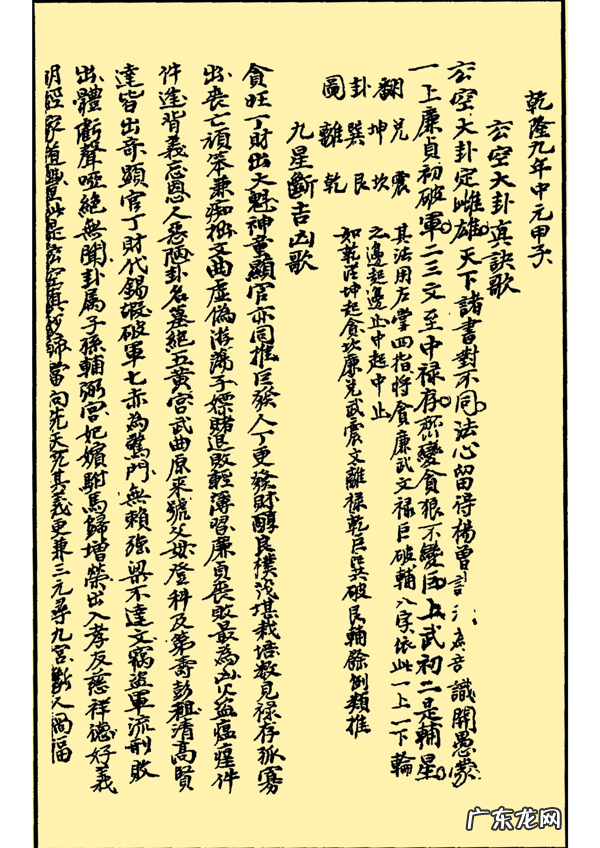 乾隆九年中元甲子
玄空大卦真訣歌
玄空大卦定雌雄天下諸書對不同法心留待楊曾 識開愚蒙
一上廉貞初破軍二三文至中禄存 變貪狼不變巨上武初二是輔星
翻 兌 震
卦 坤 坎
圖 巽 艮
離 乾
其法用左掌四指將貪廉武文禄巨破輔八字依此一上一下輪
之邊起邊止中起中止
如乾 坤起貪坎廉兌武震文離禄乾巨巽破艮輔餘例類推
九星斷吉凶歌
貪旺丁財出大魁神童顯官亦同推巨發人丁更發財醇良樸 堪栽培 見禄存孤寡
出喪亡頑笨兼痴 文曲虛偽游蕩子嫖賭退敗輕薄習廉貞喪敗最為凶火盜瘟 件
件逢背義忘恩人惡陋卦名墓絕五黃宮武曲原來號父母登科及第壽彭祖清高賢
達皆出奇顯官丁財代錫嘏破軍七赤為驚門無賴強梁不達文竊盜軍流刑敗
出體虧聲啞絕無聞卦屬子孫輔弼宮妃嬪駙馬歸增榮出入孝友慈祥德好義
明經家道豐此是玄空真妙 當向先天 其義更兼三元尋九宮斷人禍福
广东龙网